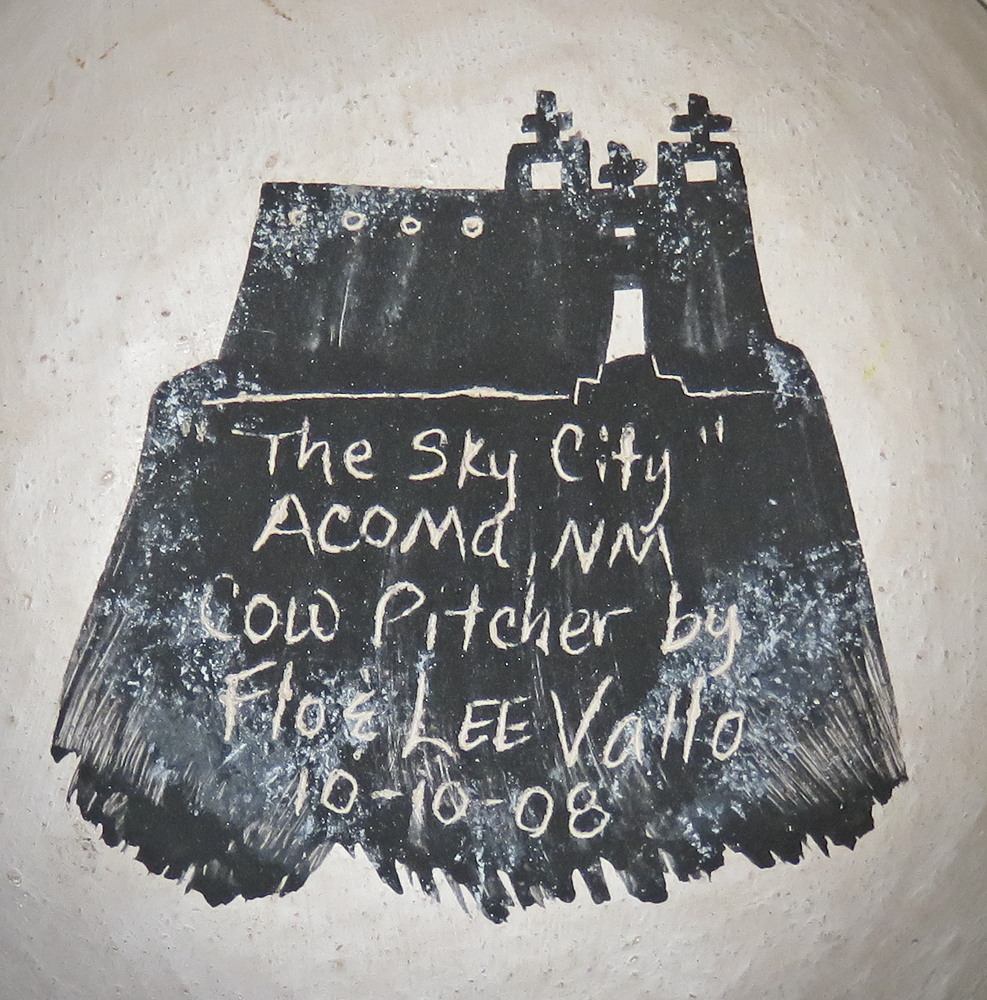 "The Sky City"
Acoma, NM
Cow Pitcher by
Flo & LEE Vallo
10-10-08